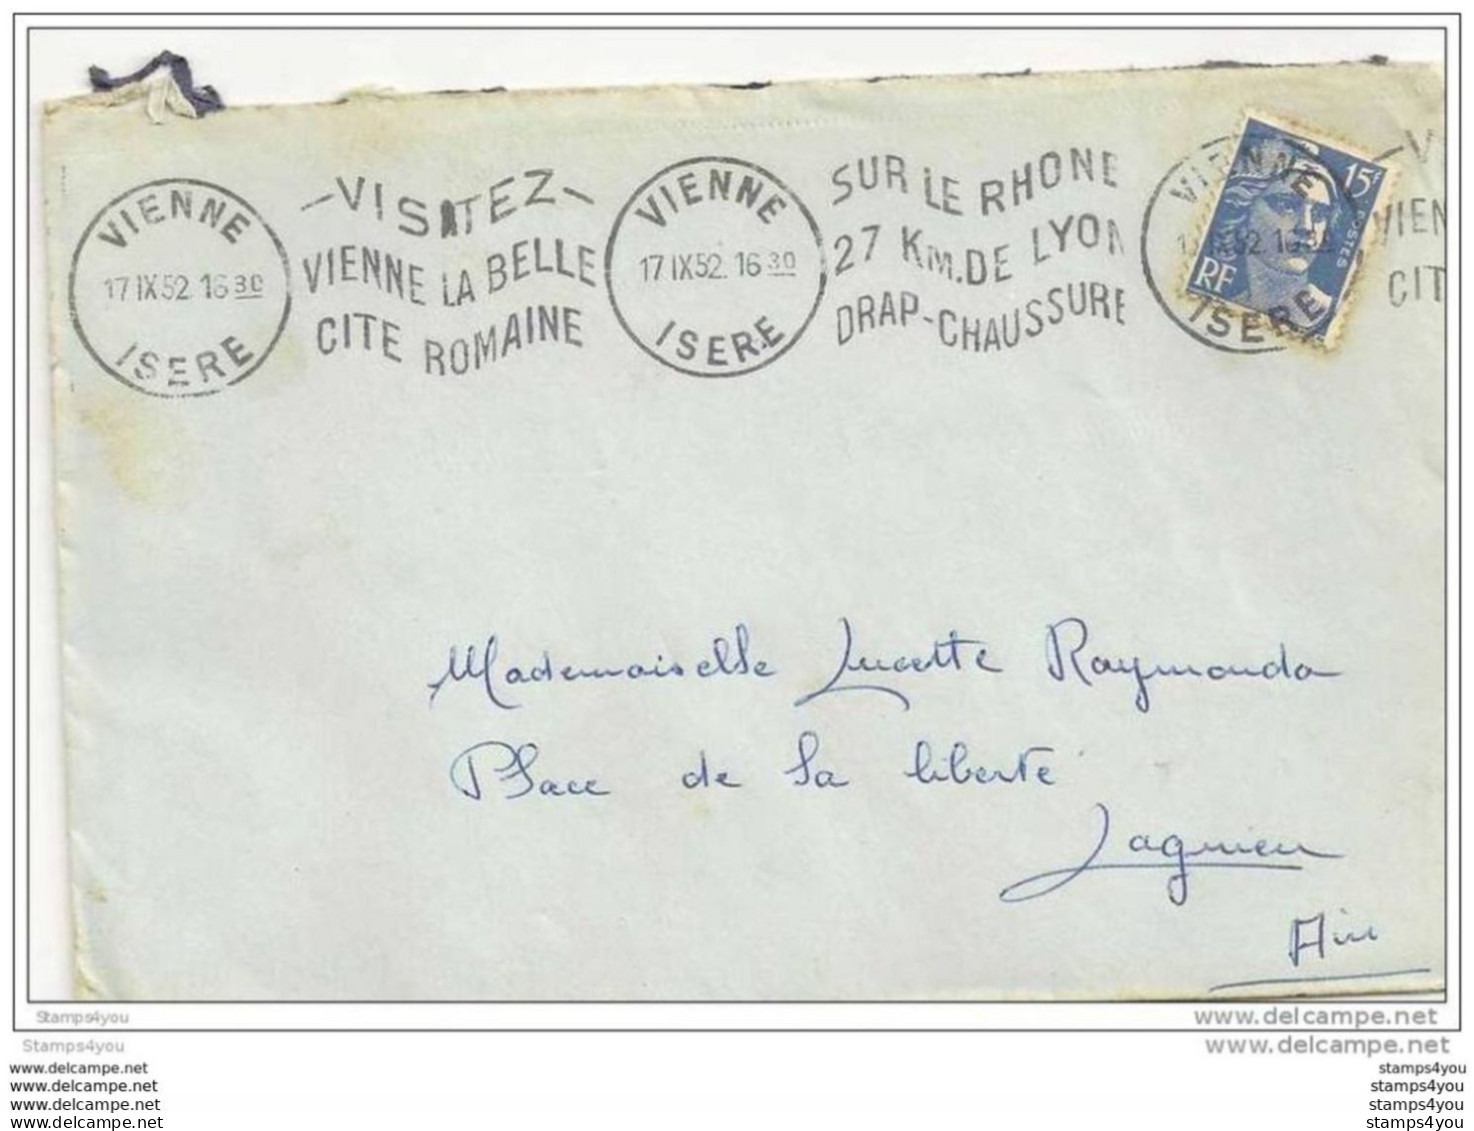 VIENNE
17 IX 52 16 30
ISERE
—VISITEZ—
VIENNE LA BELLE
CITE ROMAINE
VIENNE
17 IX 52 16 30
ISERE
SUR LE RHONE
27 KM. DE LYON
DRAP-CHAUSSURE
VIENNE
52 16 30
ISERE
15F
POSTES
RF
—V
VIEN
CIT
Mademoiselle Lucette Raymonda
Place de la liberté
Lagnieu
Ain
Stamps4you
www.delcampe.net
Stamps4you
www.delcampe.net
www.delcampe.net
stamps4you
www.delcampe.net
stamps4you
www.delcampe.net
stamps4you
www.delcampe.net
stamps4you